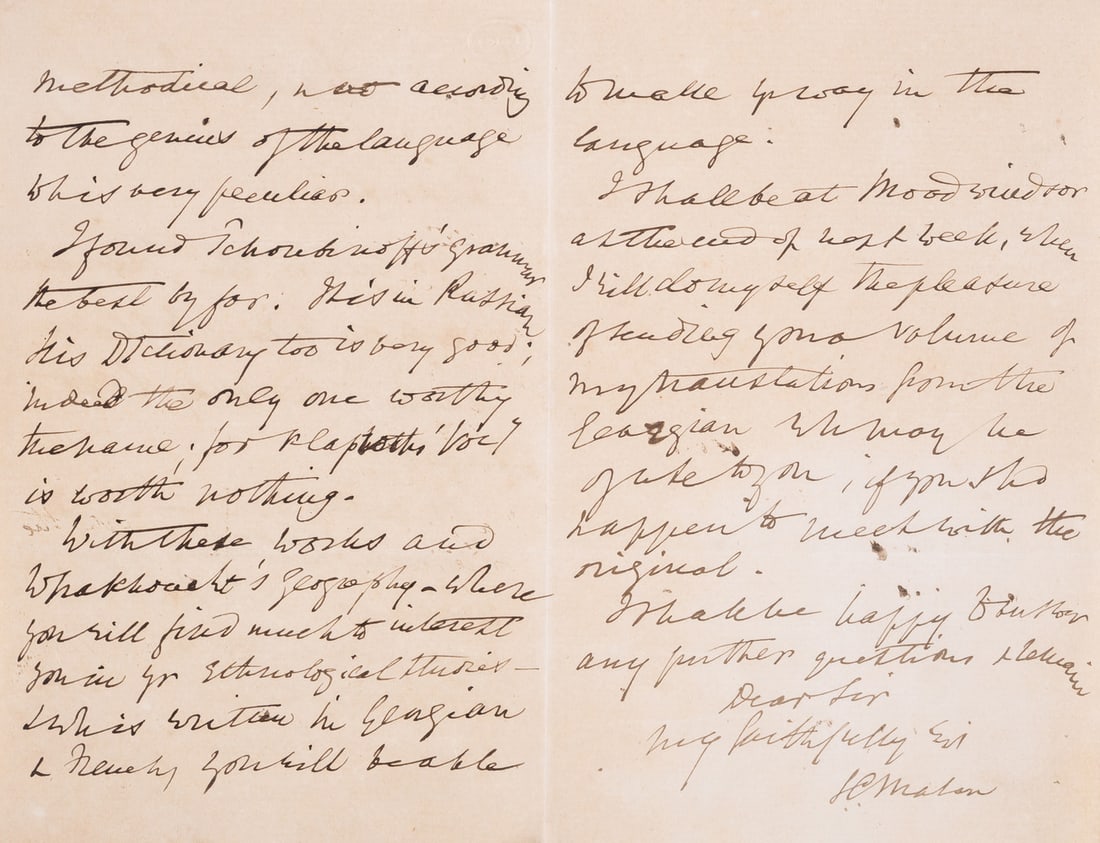 methodical, not according
to the genius of the language
wh is very peculiar.
I found Tchoubinoff's grammar
the best by far. It is in Russian
His Dictionary too is very good;
indeed the only one worthy
the name; for Klaproth's Voc^y
is worth nothing.
With these works and
Whakhoucht's Geography – where
you will find much to interest
you in yr Ethnological studies –
& wh is written in Georgian
& French, you will be able
to make yr way in the
language.
I shall be at Windsor
at the end of next week, when
I will do myself the pleasure
of sending you a volume of
my translations from the
Georgian wh may be
of use to you, if you shd
happen to meet with the
original.
I shall be happy to answer
any further questions & remain
Dear Sir
faithfully
S C Malan